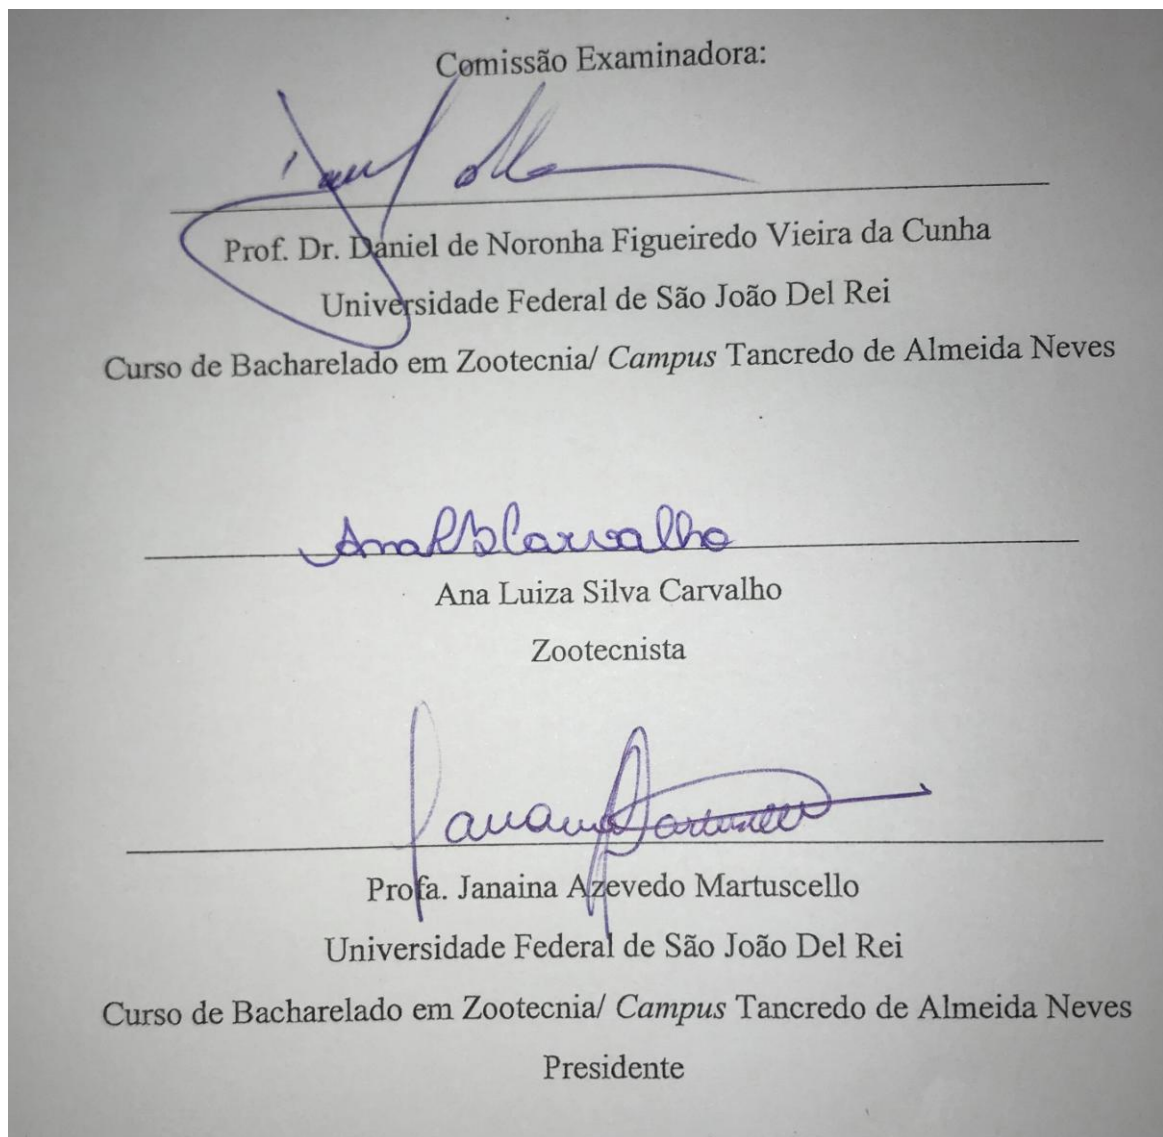 Comissão Examinadora:
Prof. Dr. Daniel de Noronha Figueiredo Vieira da Cunha
Universidade Federal de São João Del Rei
Curso de Bacharelado em Zootecnia/ Campus Tancredo de Almeida Neves
Ana LS Carvalho
Ana Luiza Silva Carvalho
Zootecnista
Janaina Martuscello
Profa. Janaina Azevedo Martuscello
Universidade Federal de São João Del Rei
Curso de Bacharelado em Zootecnia/ Campus Tancredo de Almeida Neves
Presidente